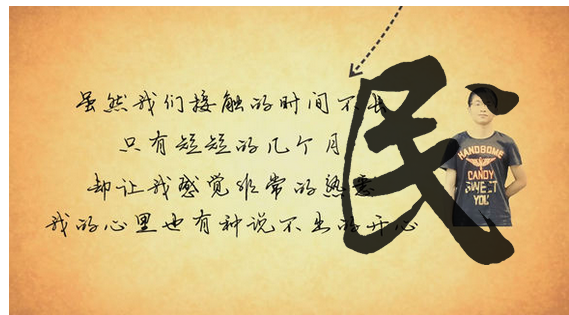 虽然我们接触的时间不长
只有短短的几个月
却让我感觉非常的熟悉
我的心里也有种说不出的开心
民
HANDSOME
CANDY
SWEET
YOU